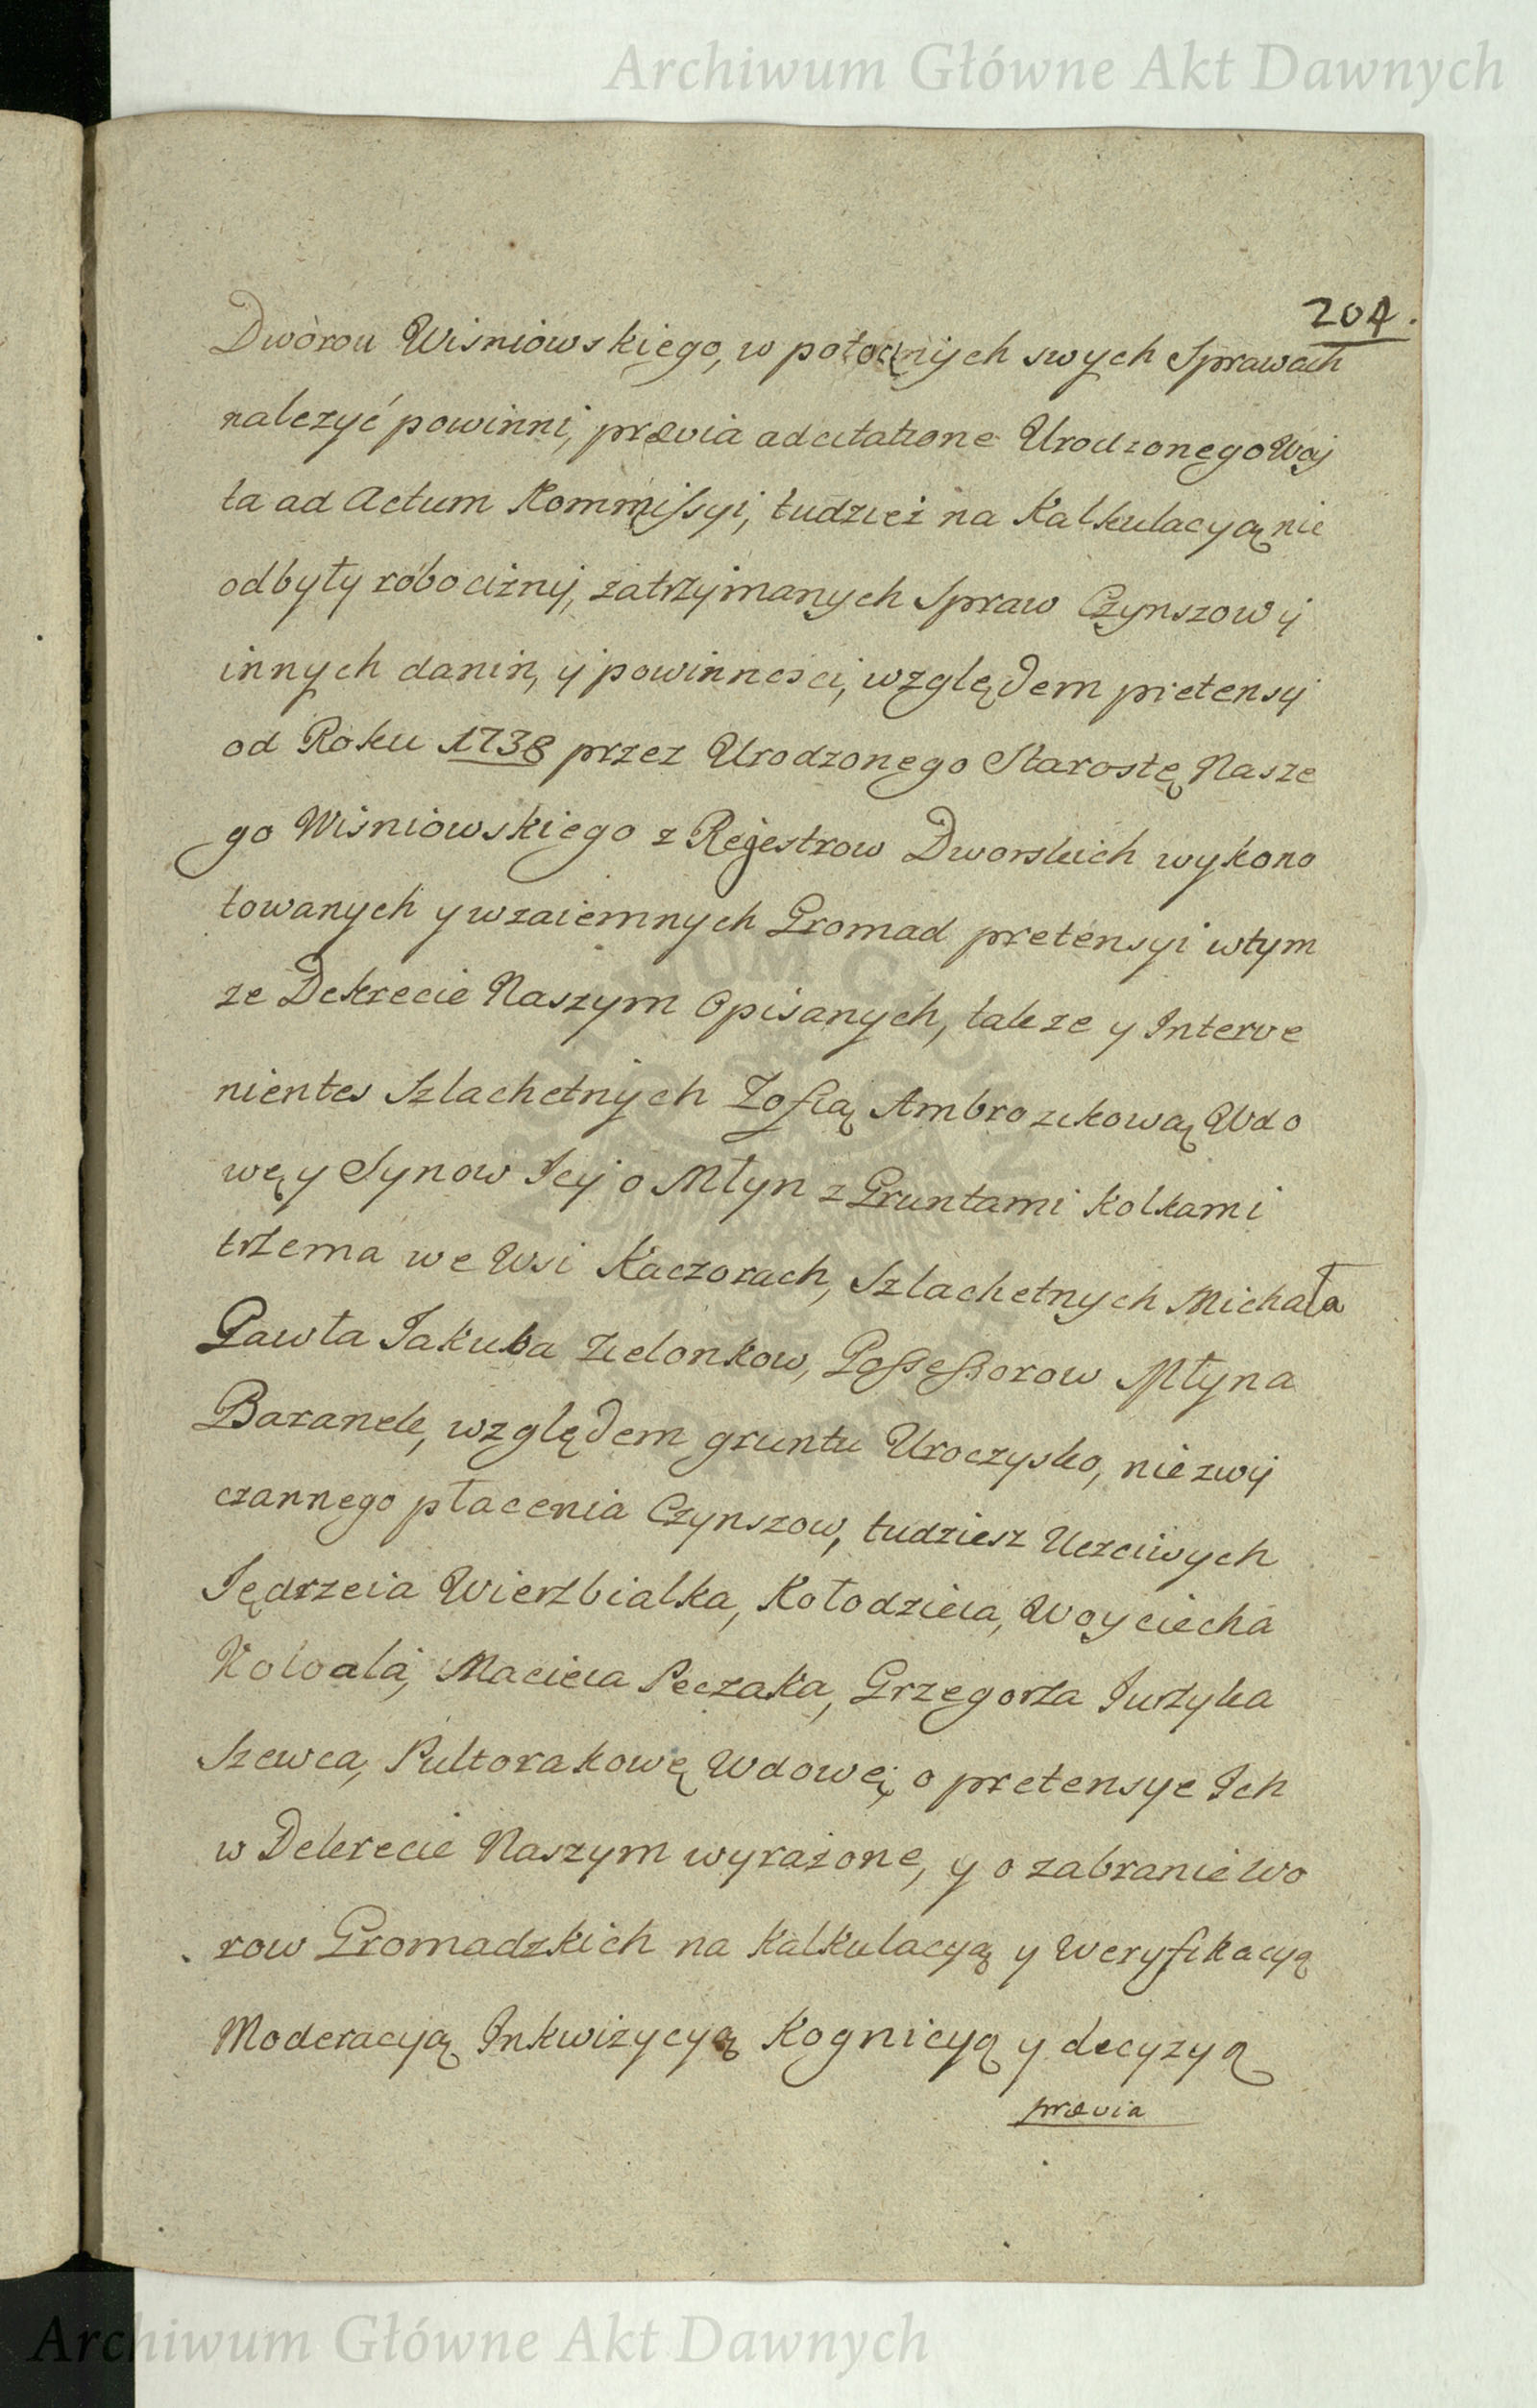 Archiwum Główne Akt Dawnych
204.
Dworou Wisniowskiego, w potocznych swych Sprawach
nalezyć powinni, prævia adcitatione Urodzonego Woj
ta ad Actum Kommissyi, tudzież na Kalkulacyą nie
odbyty robocizny, zatrzymanych Spraw Czynszow y
innych danin, y powinności, względem pretensyi
od Roku 1738 przez Urodzonego Starostę Nasze
go Wiśniowskiego z Rejestrow Dworskich wykono
towanych y wzaiemnych Gromad pretensyi wtym
ze Dekrecie Naszym Opisanych, takze y Interve
nientes Szlachetnych Zofią Ambrozikową Wdo
wę y Synow Jey o Młyn z Gruntami Kolkami
trzema we Wsi Kaczorach, Szlachetnych Michała
Pawła Jakuba Zielonkow, Possessorow Młyna
Baranek, względem gruntu Uroczysko, nie zwy
czannego płacenia Czynszow, tudziesz Uczciwych
Jędrzeia Wierzbialka, Kołodzieia, Woyciecha
Kowala, Macieia Peczaka, Grzegorza Jurzyka
Szewca, Pultorakowę Wdowę, o pretensye Ich
w Dekrecie Naszym wyrażone, y o zabranie Wo
row Gromadzkich na Kalkulacyą y Weryfikacyą
Moderacyą Inkwizycyą Kognicyą y decyzyą
prævia
Archiwum Główne Akt Dawnych